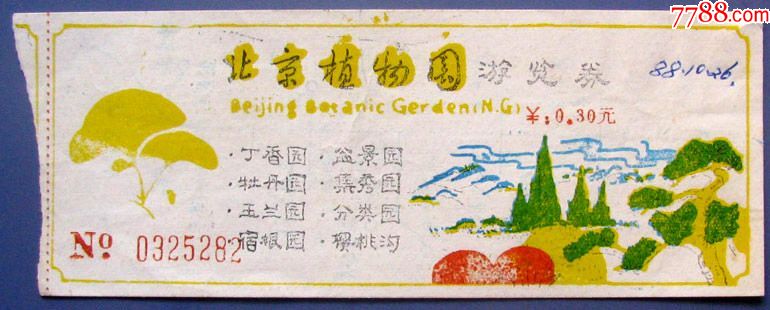 7788.com
北京植物园游览券
88.10.26.
Beijing Bosanic Gerden(N.G)
¥:0.30元
·丁香园·盆景园
·牡丹园·集秀园
·玉兰园·分类园
·宿根园·樱桃沟
No 0325282